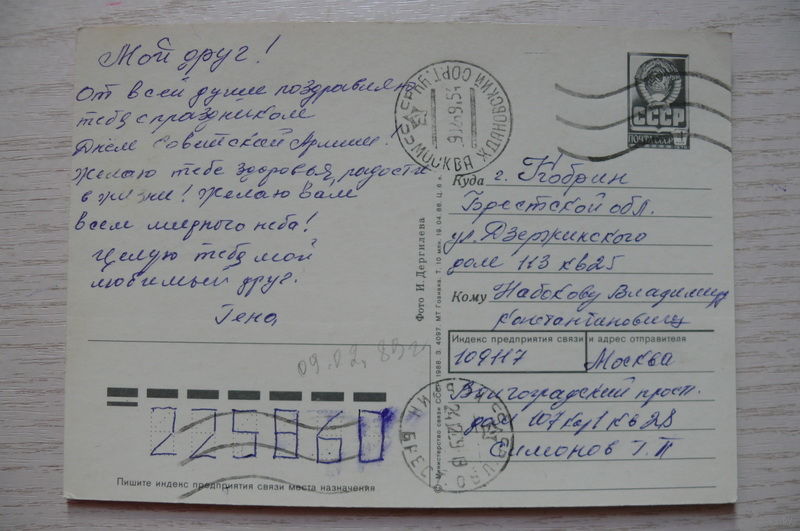 Мой друг!
От всей души поздравляю
тебя с праздником
Днём Советской Армии!
Желаю тебе здоровья, радости
в жизни! Желаю Вам
всем мирного неба!
Целую тебя мой
любимый друг.
Гена,
СССР
ПОЧТА СССР
МОСКВА
Куда г. Кобрин
Брестской обл.
ул. Дзержинского
дом 113 кв 25
Кому Набокову Владимир
Константинович
Индекс предприятия связи и адрес отправителя
109117 Москва
Волгоградский просп.
дом 107 кор 1 кв 28
Симонов Г.П
Фото И. Дергилева
© Министерство связи СССР. 1988. З. 4097. МТ Гознака. Т. 10 млн. 19.04.88. Ц. 6 к.
09.02.89г
225860
Пишите индекс предприятия связи места назначения